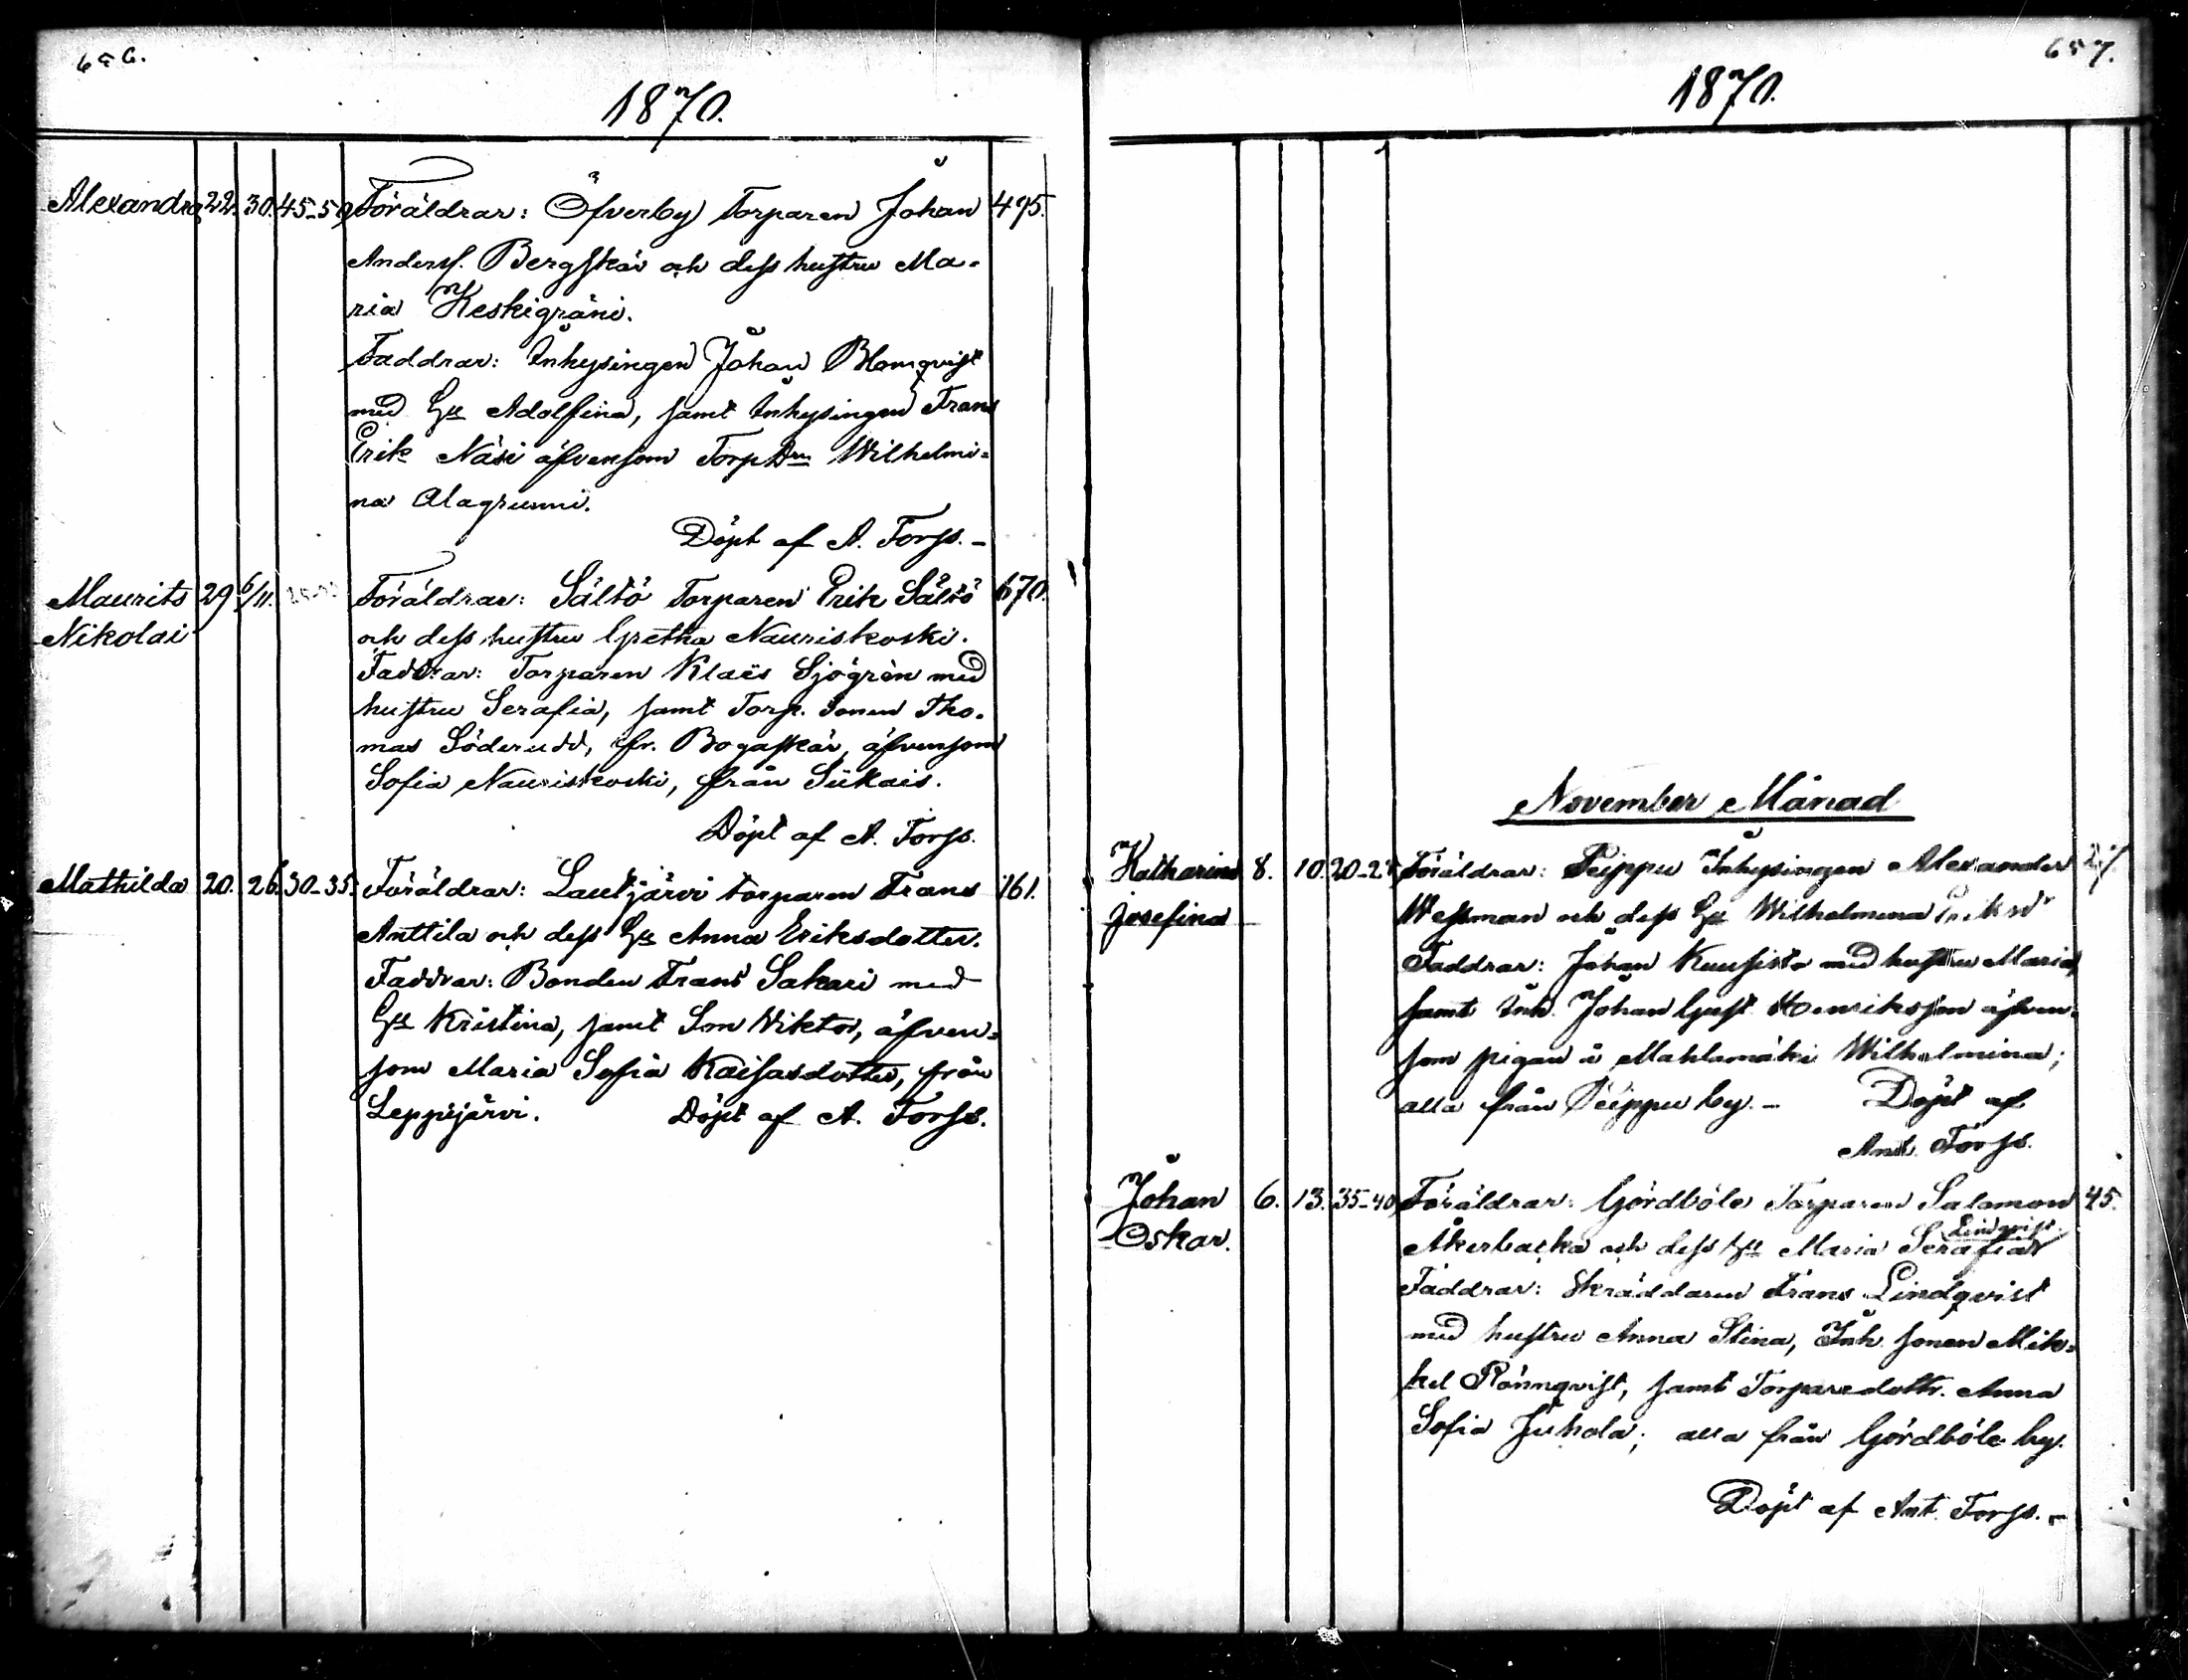 656.
1870.
Alexandra 22. 30. 45-50 Föräldrar: Öfverby Torparen Johan 495.
Anderss. Bergskär och dess hustru Ma-
ria Keskigräni.
Faddrar: Inhysingen Johan Blomqvist
med Hu Adolfina, samt Inhysingen Frans
Erik Näsi äfvensom Torp Drn Wilhelmi-
na Alagrunni.
Döpt af A. Forss. -
Maurits 29 6/11. Föräldrar: Sältö Torparen Erik Sältö 670.
Nikolai och dess hustru Gretha Nauriskoski.
Faddrar: Torparen Klaës Sjögrèn med
hustru Serafia, samt Torp. sonen Tho-
mas Söderudd, fr. Bogaskär, äfvensom
Sofia Nauriskoski, från Siikais.
Döpt af A. Forss.
Mathilda 20. 26. 30-35. Föräldrar: Lautjärvi torparen Frans 161.
Anttila och dess Hu Anna Eriksdotter.
Faddrar: Bonden Frans Sakari med
Hu Kristina, samt Son Viktor, äfven-
som Maria Sofia Kaisasdotter, från
Leppijärvi. Döpt af A. Forss.
657.
1870.
November Månad
Katharina 8. 10. Föräldrar: Peippu Inhysingen Alexander 27.
Josefina Wessman och dess Hu Wilhelmina
Faddrar: Johan Kuusisto med hustru Maria,
samt Inh. Johan Gust. Henriksson äfven-
som pigan å Mahlamäki Wilhelmina;
alla från Peippu by. - Döpt af
Ant. Forss.
Johan 6. 13. 35-40 Föräldrar: Gördböle Torparen Salomon 45.
Oskar. Åkerbacka och dess Hu Maria Serafia Lindqvist
Faddrar: Skräddaren Frans Lindqvist
med hustru Anna Stina, Inh. sonen Mik-
kel Rönnqvist, samt Torparedottr. Anna
Sofia Juhola; alla från Gördböle by.
Döpt af Ant. Forss. -